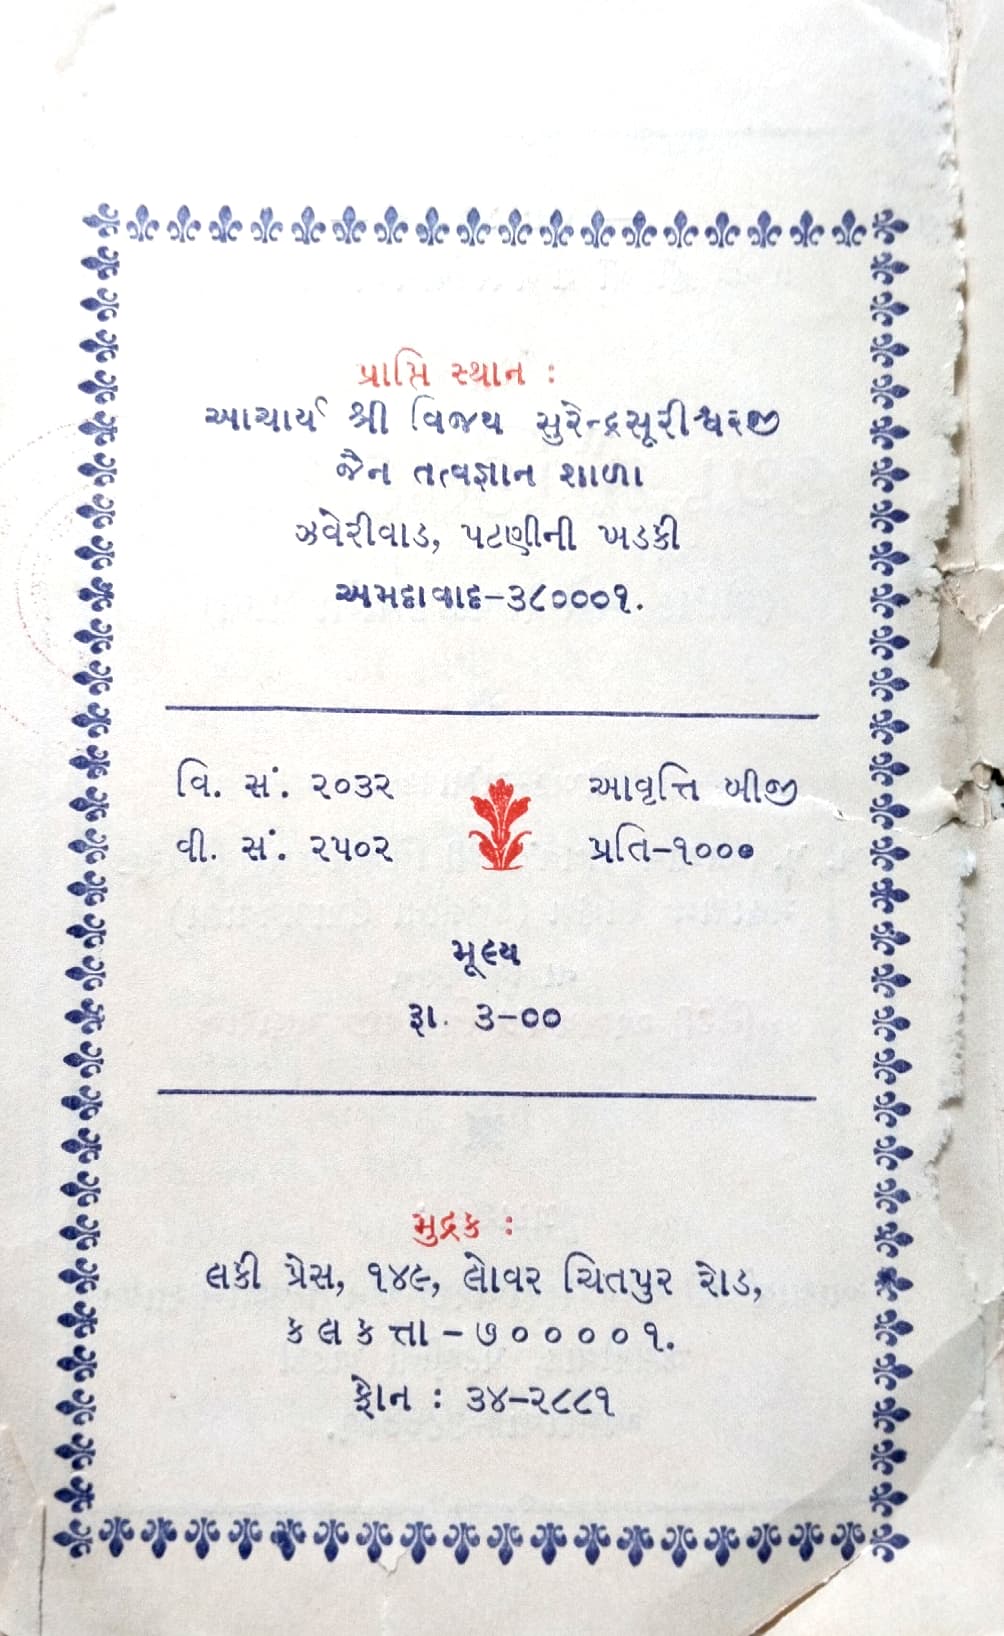 પ્રાપ્તિ સ્થાન :
આચાર્ય શ્રી વિજય સુરેન્દ્રસૂરીશ્વરજી
જૈન તત્વજ્ઞાન શાળા
ઝવેરીવાડ, પટણીની ખડકી
અમદાવાદ-૩૮૦૦૦૧.
વિ. સં. ૨૦૩૨ આવૃત્તિ બીજી
વી. સં. ૨૫૦૨ પ્રતિ-૧૦૦૦
મૂલ્ય
રૂા. ૩-૦૦
મુદ્રક :
લકી પ્રેસ, ૧૪૯, લોવર ચિતપુર રોડ,
કલકત્તા - ૭૦૦૦૦૧.
ફોન : ૩૪-૨૮૮૧